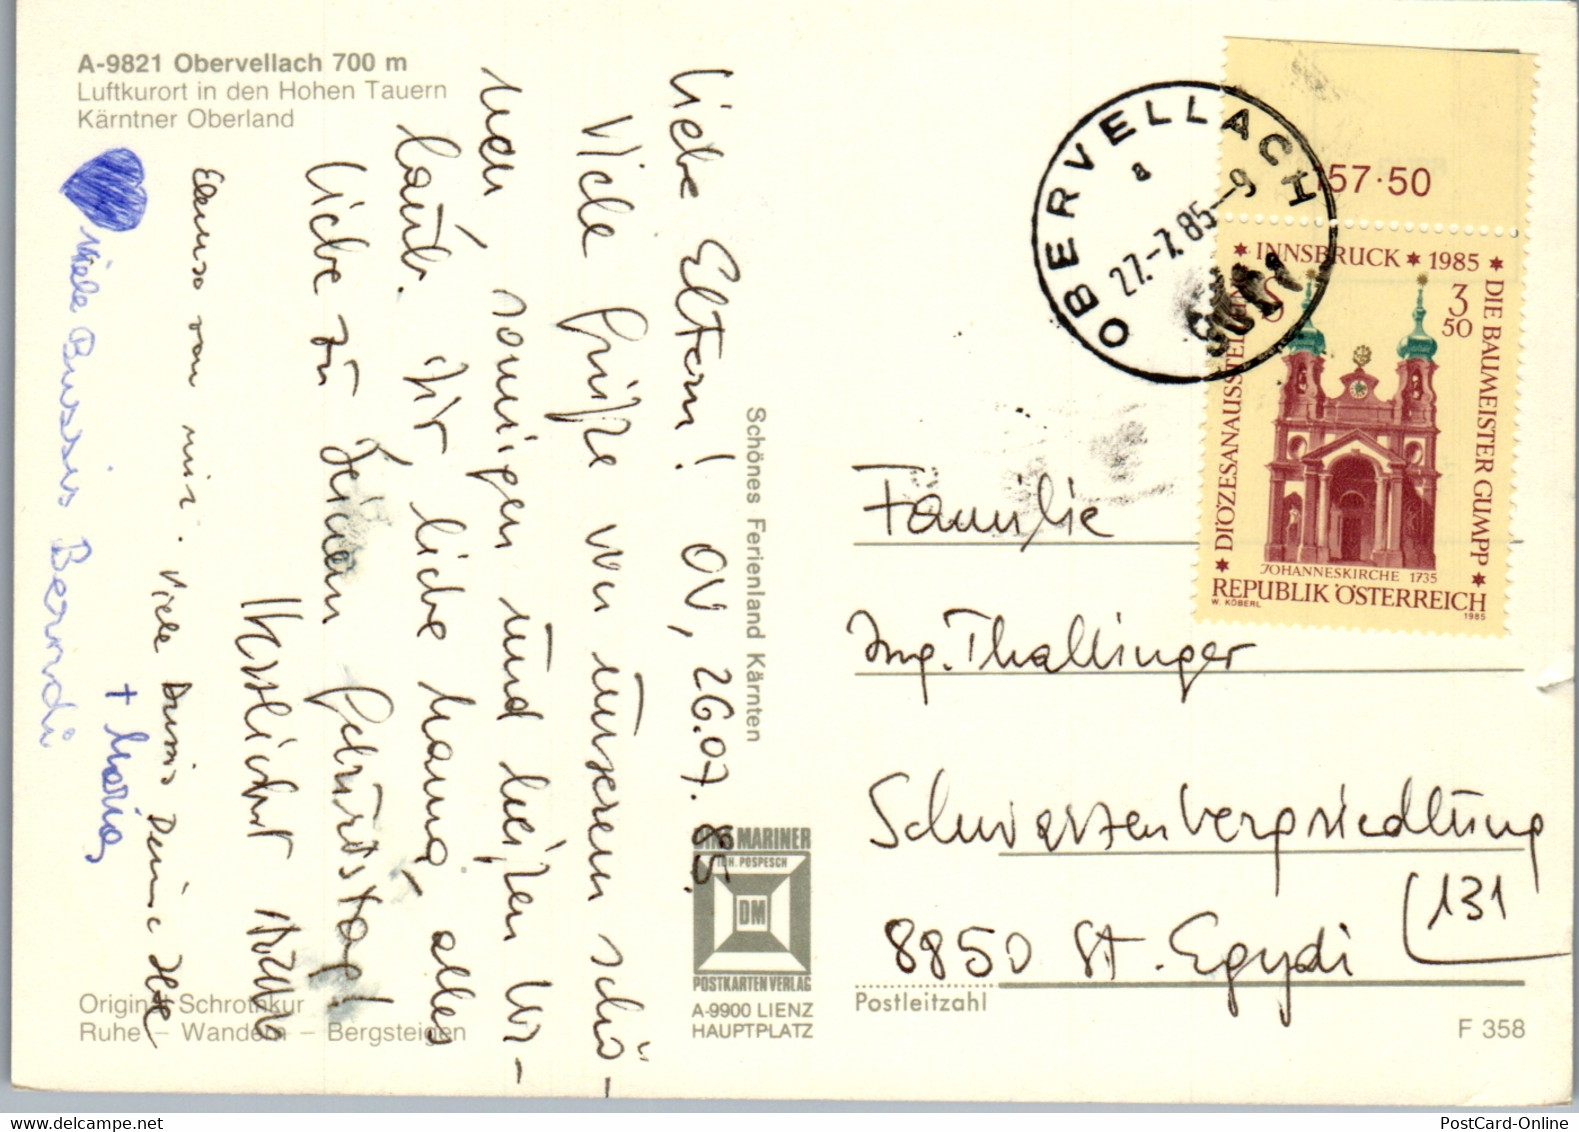 A-9821 Obervellach 700 m
Luftkurort in den Hohen Tauern
Kärntner Oberland
Liebe Eltern! OV, 26.07.85.
Viele Grüße von unserem schö-
nen, sonnigen und heißen Ur-
laub. Dir, liebe Mama, alles
Liebe zu Deinem Geburtstag!
Herzlichst
Ebenso von mir. Viele Bussis Deine
Viele Bussis Berndi
+ Marios
Schönes Ferienland Kärnten
DINO MARINER
INH. POSPESCH
DM
POSTKARTENVERLAG
A-9900 LIENZ
HAUPTPLATZ
Original Schrothkur
Ruhe – Wandern – Bergsteigen
OBERVELLACH
a
27.-7.85-9
57·50
INNSBRUCK * 1985 *
DIÖZESANAUSSTELLUNG
DIE BAUMEISTER GUMPP
S 3
50
JOHANNESKIRCHE 1735
REPUBLIK ÖSTERREICH
W. KÖBERL 1985
Familie
Ing. Thallinger
Schwarzenbergsiedlung
131
8850 St. Egydi
Postleitzahl
F 358
PostCard-Online